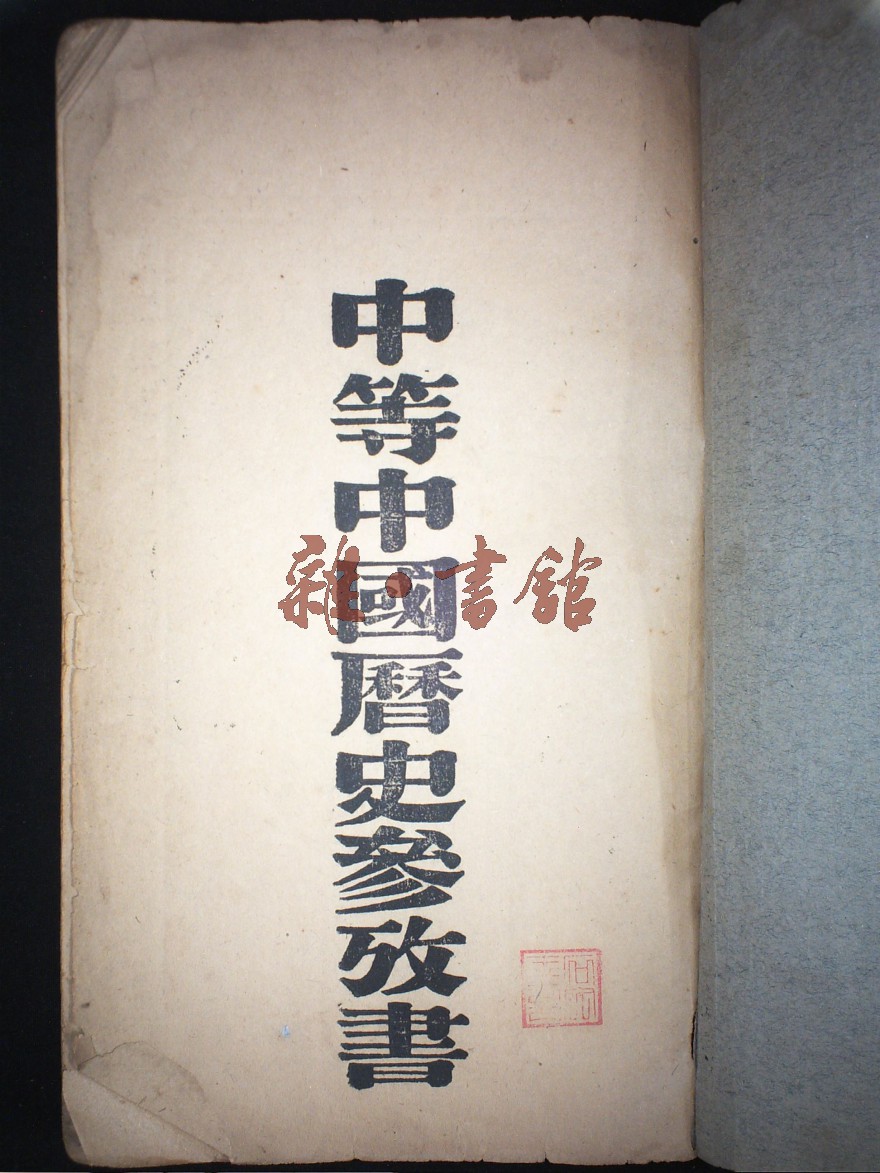 中等中國曆史參攷書
雜·書館